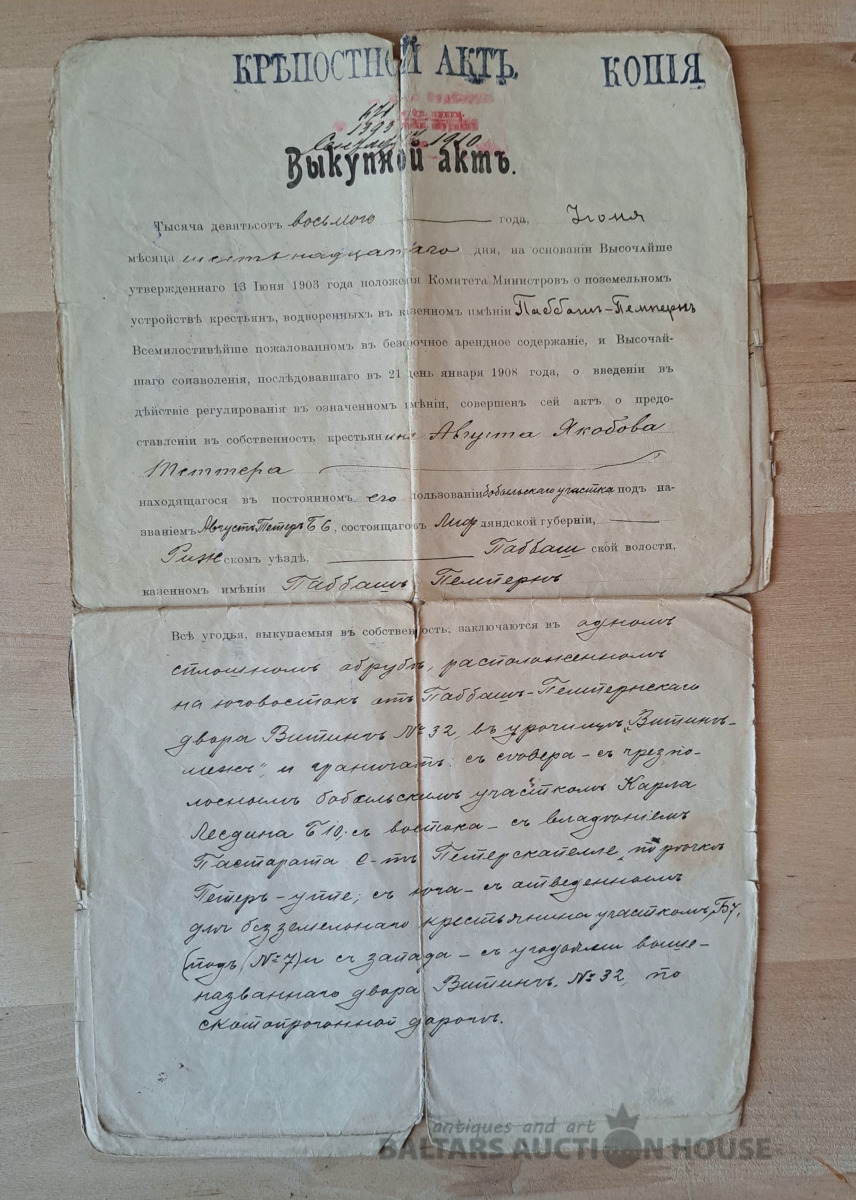 КРѢПОСТНОЙ АКТЪ. КОПІЯ
1910
Выкупной актъ.
Тысяча девятьсот восьмого года, Iюня
мѣсяца шестьнадцатаго дня, на основаніи Высочайше
утвержденнаго 13 Iюня 1903 года положенія Комитета Министровъ о поземельномъ
устройствѣ крестьян, водворенныхъ въ казенномъ имѣніи Паббашъ-Пемпернъ
Всемилостивѣйше пожалованномъ въ безсрочное арендное содержаніе, и Высочай-
шаго соизволенія, послѣдовавшаго въ 21 день января 1908 года, о введеніи въ
дѣйствіе регулированія въ означенномъ имѣніи, совершенъ сей актъ о предо-
ставленіи въ собственность крестьянина Августа Якобова
Теттера
находящагося въ постоянномъ его пользованіи бобыльскаго участка подъ на-
званіемъ Августъ Петеръ Б6, состоящаго въ Лифляндской губерніи,
Рижскомъ уѣздѣ, Паббашской волости,
казенномъ имѣніи Паббашъ Пемпернъ
Всѣ угодья, выкупаемыя въ собственность, заключаются въ одномъ
сплошномъ обрубѣ, расположенномъ
на юговостокъ отъ Паббашъ-Пемпернскаго
двора Витинь № 32, въ урочищѣ „Витинь-
межъ", и граничатъ: съ сѣвера – съ чрезпо-
лоснымъ бобыльскимъ участкомъ Карла
Лесдина Б10; съ востока – съ владѣніемъ
Пастората С-тъ Петерскапелле, по рѣчкѣ
Петеръ-уппе; съ юга – съ отведеннымъ
для безземельнаго крестьянина участкомъ Б7,
(подъ № 7) и съ запада – съ угодьями выше-
названнаго двора Витинь № 32, по
скотопрогонной дорогѣ.
antiques and art
BALTARS AUCTION HOUSE